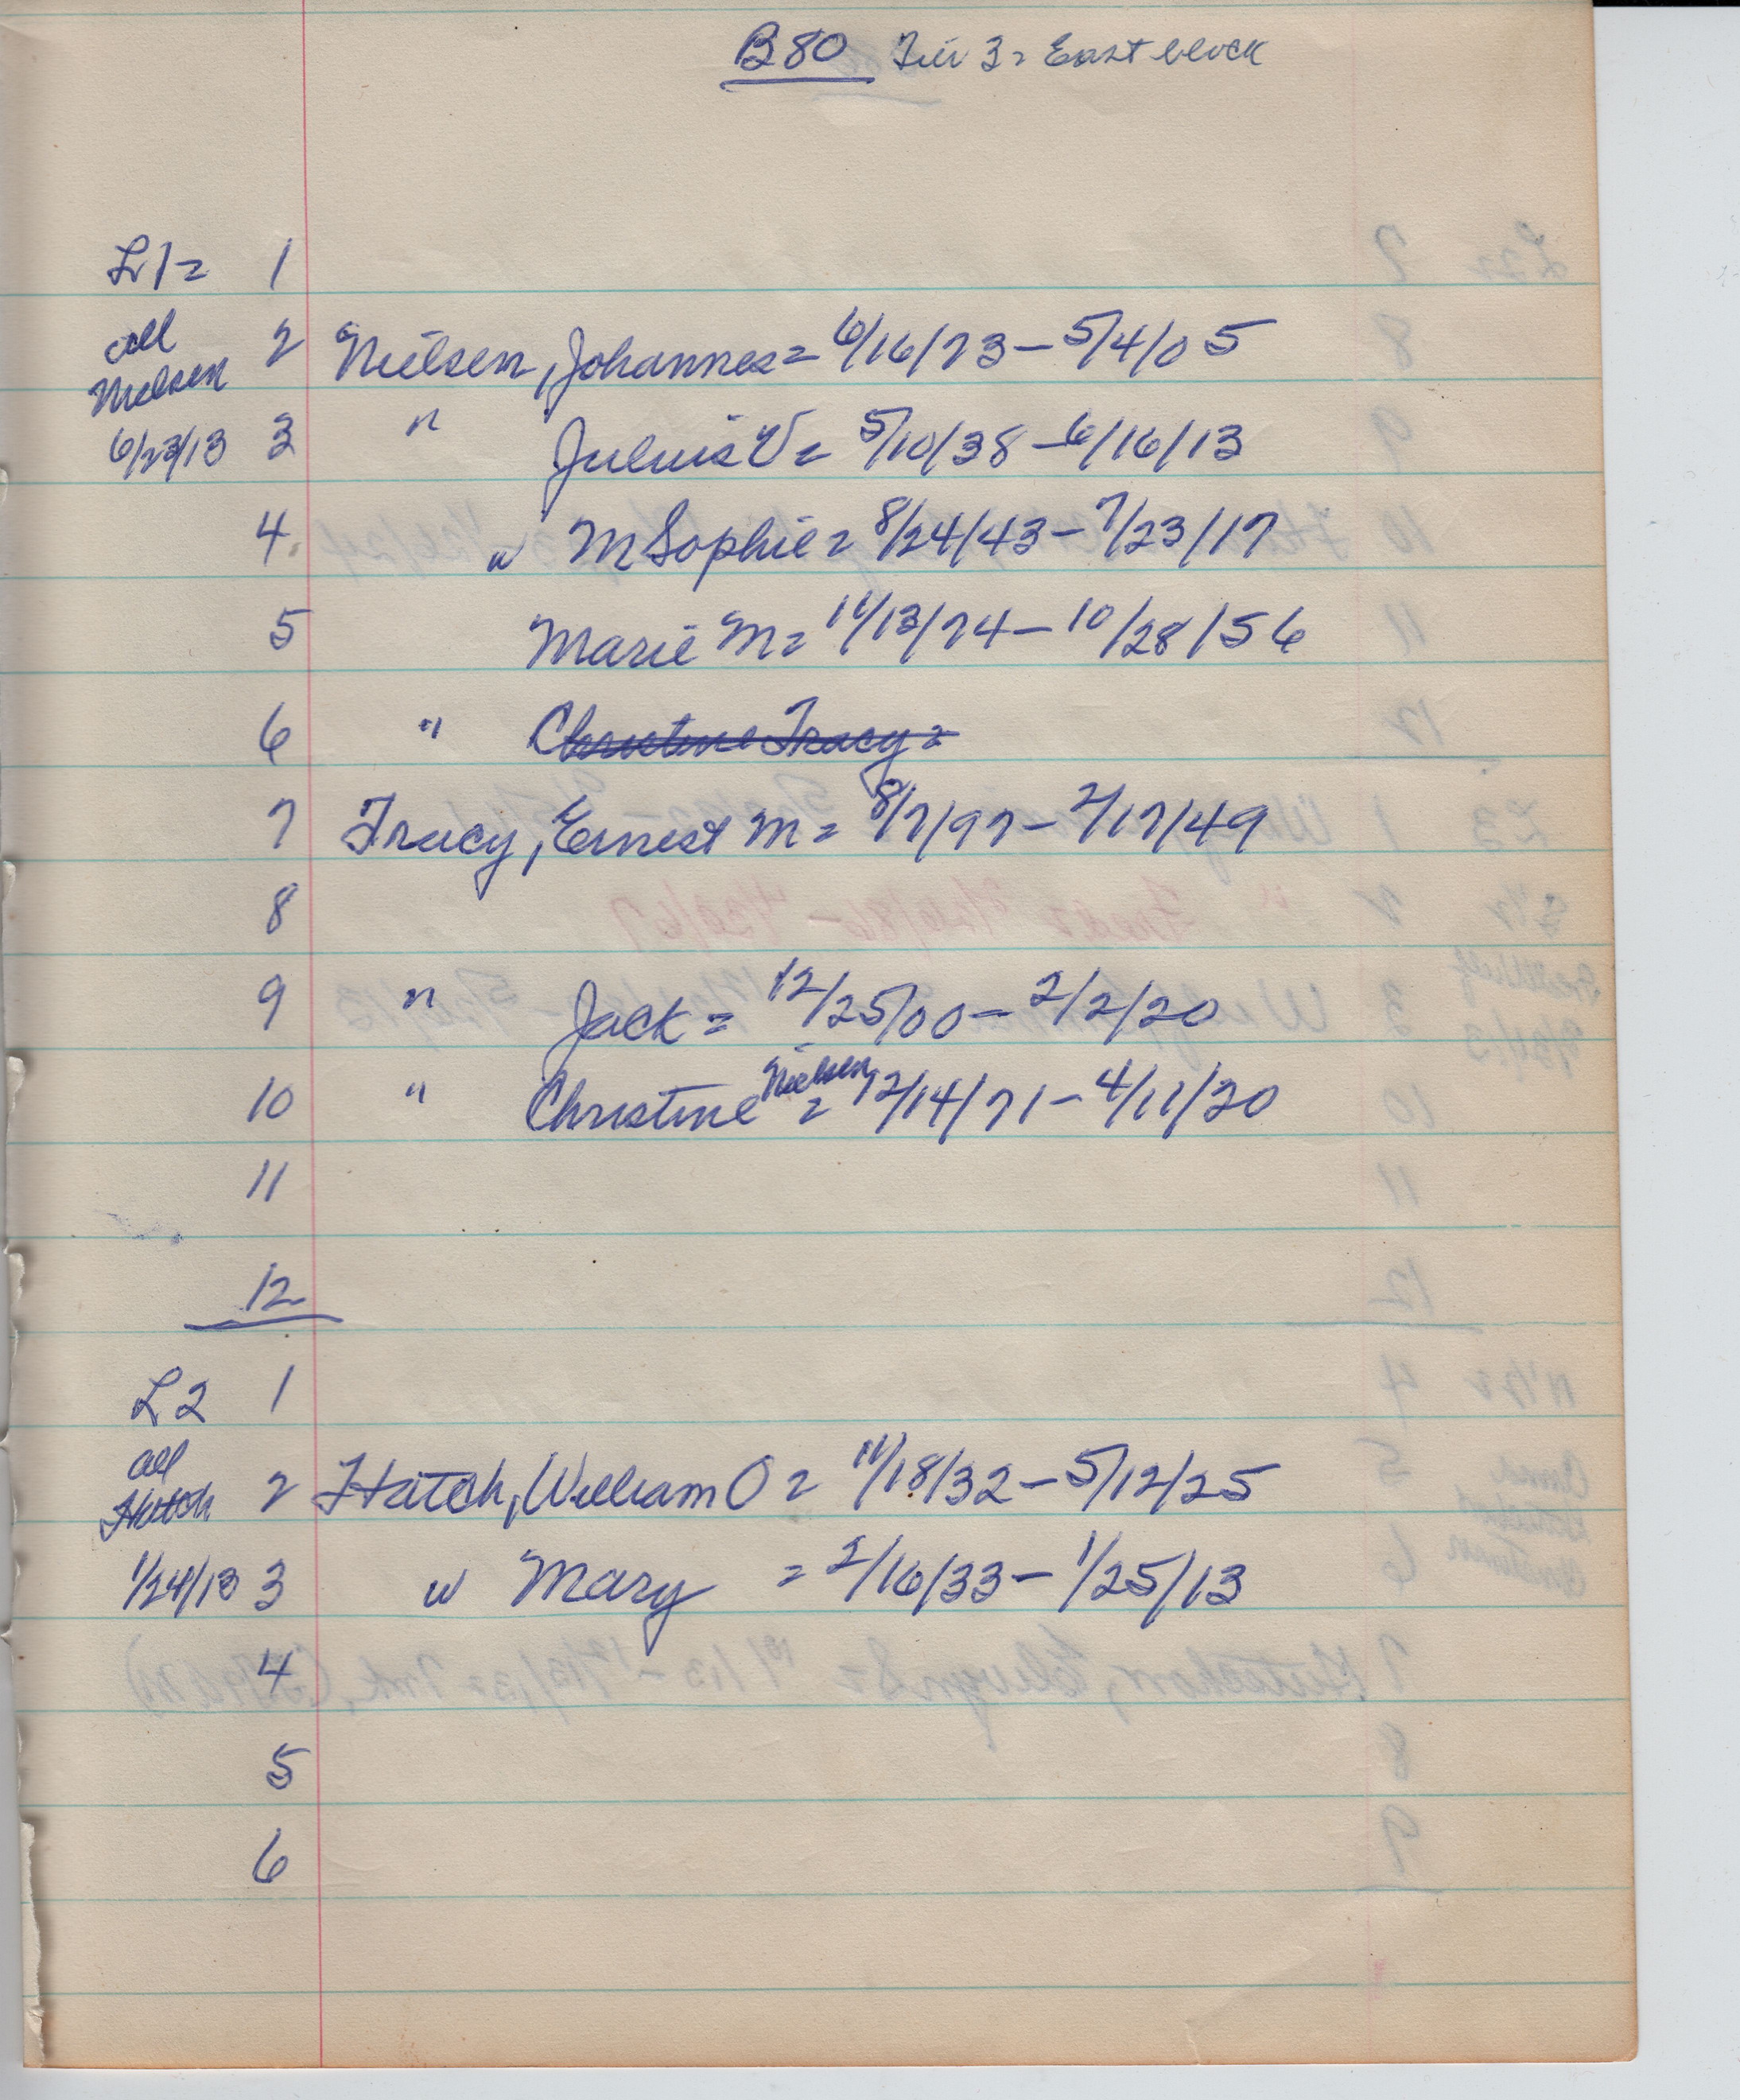 B80 Tier 3 = East block
L1 = 1
all Nielsen 2 Nielsen, Johannes = 6/16/73 – 5/4/05
6/23/13 3 " Julius V = 5/10/38 – 6/16/13
4 " M Sophie = 8/24/43 – 7/23/17
5 Marie M = 11/13/74 – 10/28/56
6 " Christine Tracy =
7 Tracy, Ernest M = 8/7/97 – 2/17/49
8
9 " Jack = 12/25/00 – 2/2/20
10 " Christine Nielsen = 12/14/71 – 4/11/20
11
12
L2 1
all Hatch 2 Hatch, William O = 11/18/32 – 5/12/25
1/24/13 3 " Mary = 2/16/33 – 1/25/13
4
5
6